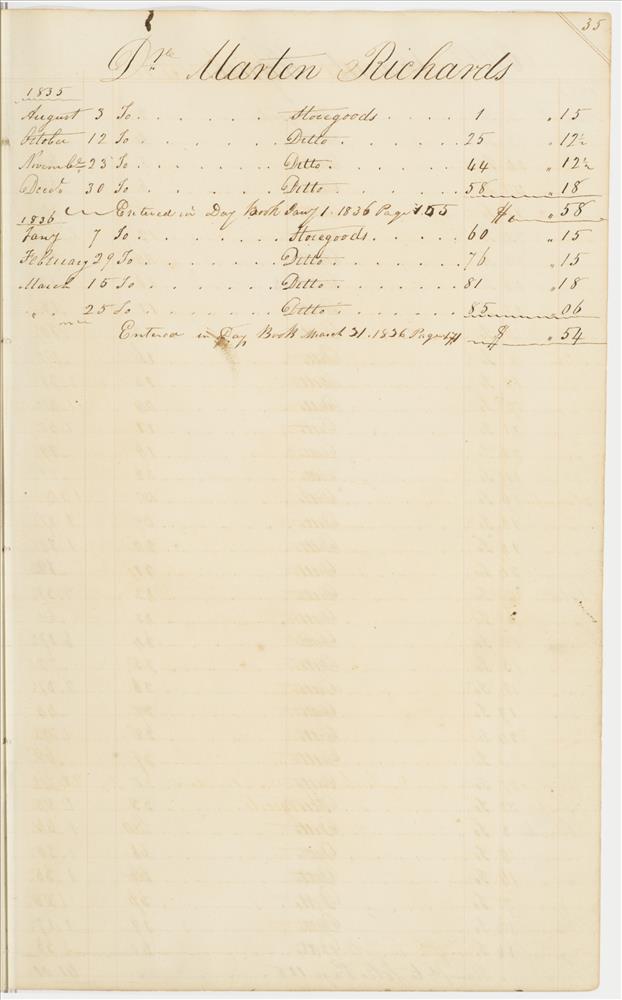 35
Dr. Marten Richards
1835
August 3 To . . . . . . Storegoods . . . . 1 " 15
October 12 To . . . . . . Ditto . . . . . . 25 " 12½
Novembr 23 To . . . . . . Ditto . . . . . . 44 " 12½
Decbr 30 To . . . . . . Ditto . . . . . . 58 " 18
Entered in Day Book Jany 1. 1836 Page 155 $ " 58
1836
Jany 7 To . . . . . . Storegoods . . . . . 60 " 15
February 29 To . . . . . . Ditto . . . . . . 76 " 15
March 15 To . . . . . . Ditto . . . . . . 81 " 18
" 25 To . . . . . . Ditto . . . . . . 85 06
Entered in Day Book March 31. 1836 Page 171 $ " 54